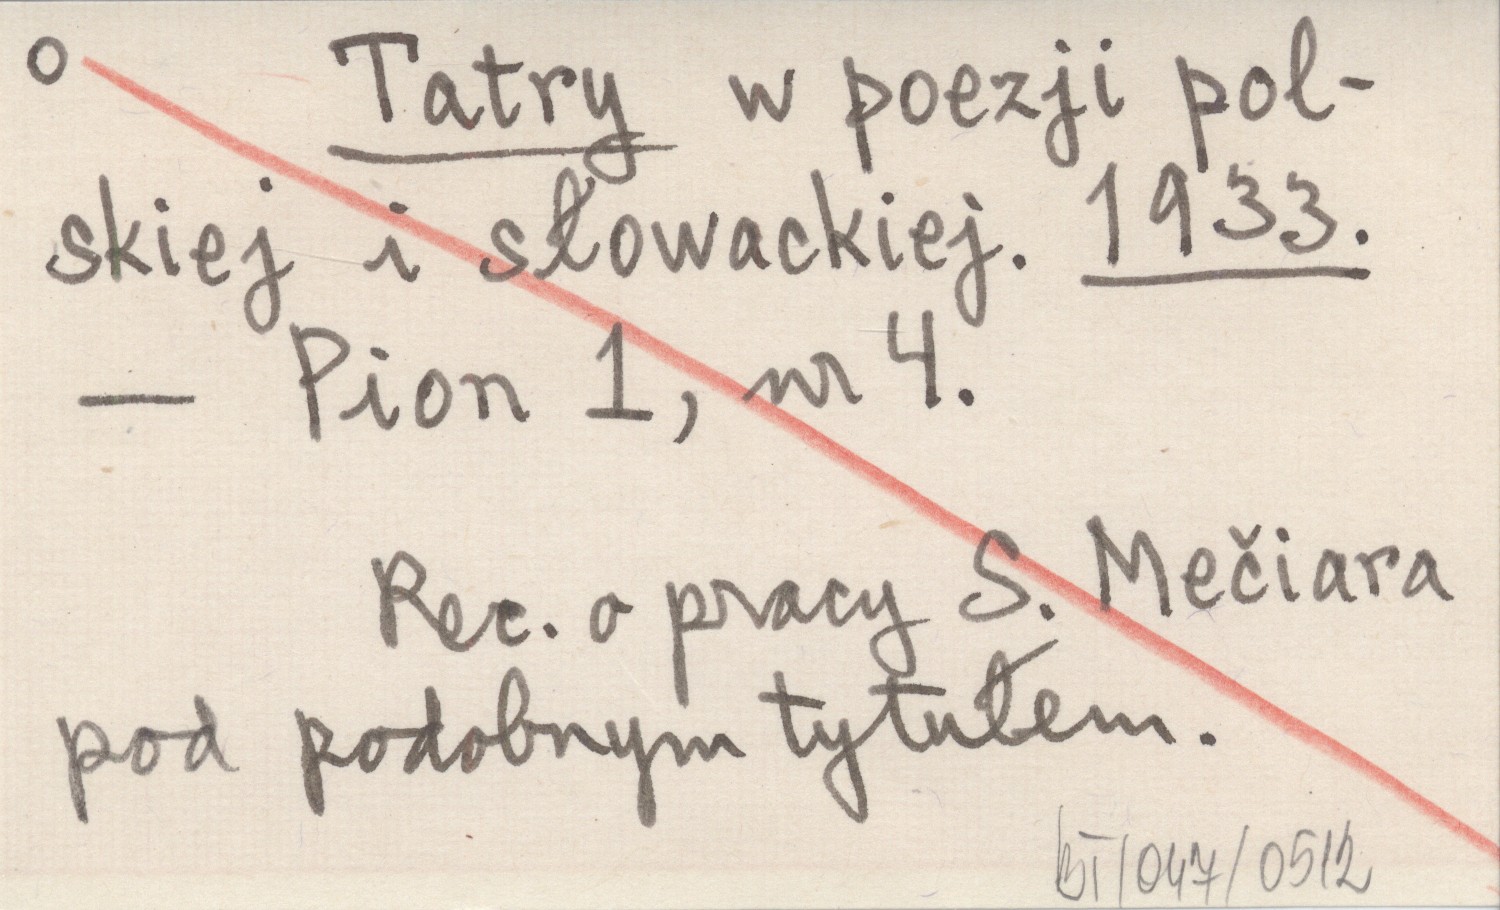 o Tatry w poezji pol-
skiej i słowackiej. 1933.
— Pion 1, nr 4.
Rec. o pracy S. Mečiara
pod podobnym tytułem.
BT/047/0512